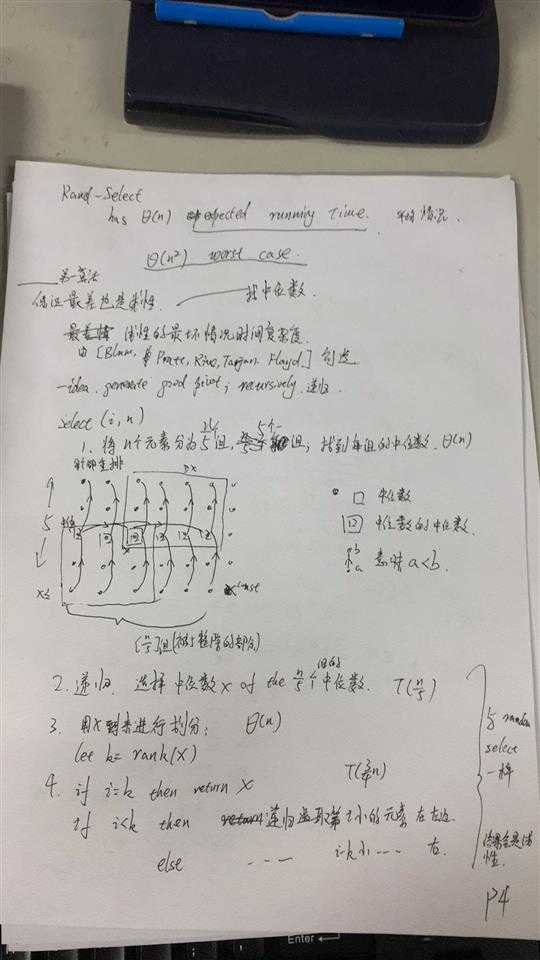 Rand-Select
has θ(n) expected running time. 平均情况.
θ(n²) worst case.
另一算法
保证最差也是线性. 找中位数.
线性的最坏情况时间复杂度.
由 [Blum, Pratt, Rive, Tarjan. Floyd] 创造
-idea. generate good pivot, recursively. 递归.
select (i, n)
1. 将 n个元素分为 n/5 组, 5个一组, 找到每组的中位数. θ(n)
≥x
5
□ 中位数
中位数的中位数.
b
a 意味 a<b.
x≤
const
2. 递归. 选择中位数 x of the n/5 个组的中位数. T(n/5)
3. 用x 来进行划分; θ(n)
let k = rank(x)
4. if i=k then return x T(3/4 n)
if i<k then 递归选取第 i 小的元素 在左边
else ---- i-k小---- 右.
与 random
select
一样
结果会是线
性.
P4
Enter